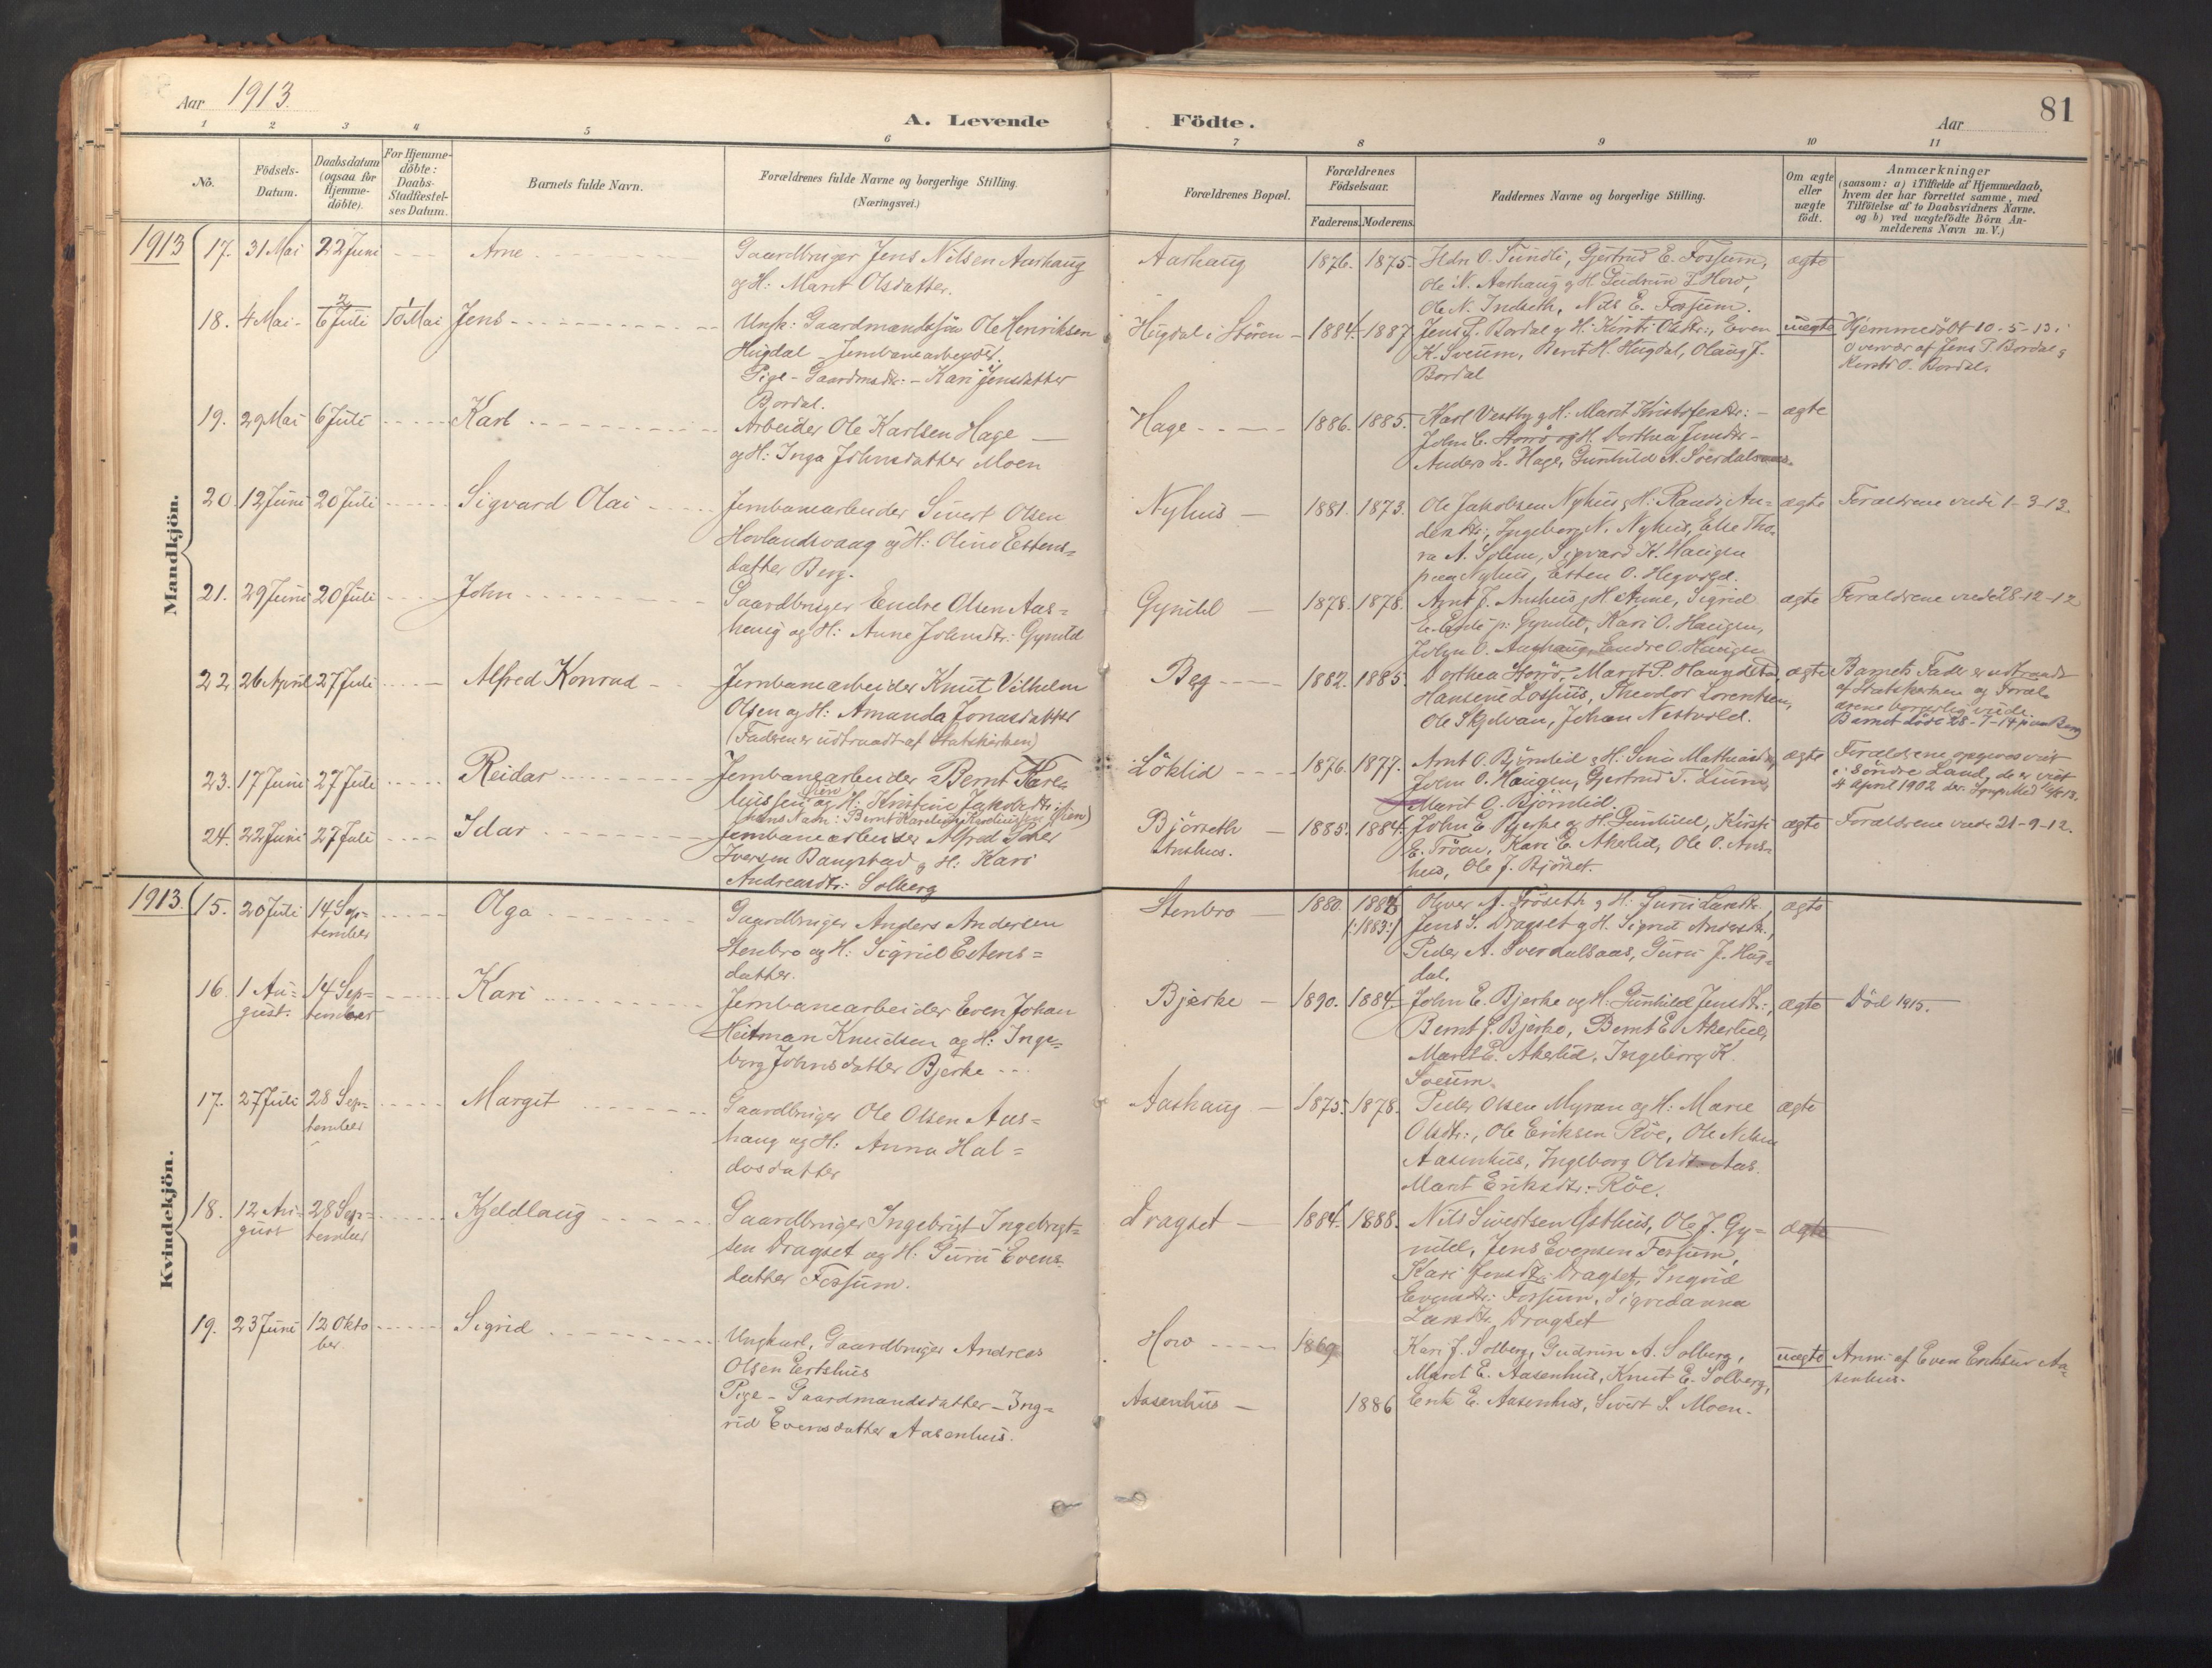 Aar 1913.
A. Levende Födte.
Aar
81
1 2 3 4 5 6 7 8 9 10 11
No.
Födsels-
Datum.
Daabsdatum
(ogsaa for
Hjemme-
döbte).
For Hjemme-
döbte:
Daabs-
Stadfæstel-
ses Datum.
Barnets fulde Navn.
Forældrenes fulde Navne og borgerlige Stilling.
(Næringsvei.)
Forældrenes Bopæl.
Forældrenes
Födselsaar.
Faderens. Moderens.
Faddernes Navne og borgerlige Stilling.
Om ægte
eller
uægte
födt.
Anmærkninger
(saasom: a) i Tilfælde af Hjemmedaab,
hvem der har forrettet samme, med
Tilföielse af to Daabsvidners Navne,
og b) ved uægtefödte Börn An-
melderens Navn m. V.)
Mandkjön.
1913
17. 31 Mai 22 Juni Arne
Gaardbruger Jens Nilsen Aashaug
og H: Marit Olsdatter.
Aashaug 1876. 1875.
O. Sundli, Gjertrud E. Fossum,
Ole N. Aashaug og H. Gudrun Hov,
Ole N. Indseth, Nils E. Fossum.
ægte
18. 4 Mai - 6 Juli 10 Mai Jens
Ungk: Gaardmandssön Ole Henriksen
Hugdal - Jernbanearbeider.
Pige - Gaardmdtr: - Kari Jensdatter
Bordal.
Hugdal i Stören - 1884. 1887
Jens P. Bordal og H: Kirsti Olsdtr:, Even
K. Sveum, Berit H. Hugdal, Olaug J.
Bordal
uægte
Hjemmedöbt 10-5-13 i
overvær af Jens P. Bordal og
Kersti O. Bordal.
19. 29 Mai 6 Juli Karl
Arbeider Ole Karlsen Hage
og H: Inga Johnsdatter Moen
Hage 1886. 1885.
Karl Vestby og H: Marit Kristofersdtr: -
John C. Storrö og H. Dorthea Jensdtr -
Anders L. Hage, Gunhild A. Sverdalsaas.
ægte
20. 12 Juni 20 Juli Sigvard Olai
Jernbanearbeider Sivert Olsen
Hovlandsvaag og H: Oline Estens-
datter Berg.
Nyhus 1881. 1873.
Ole Jakobsen Nyhus og H: Randi An-
dersdtr:, Ingeborg N. Nyhus, Else Tho-
ra A. Solem, Sigvard K. Haugen
Nyhus, Esten O. Hegvold.
ægte
Forældrene viede 1-3-13.
21. 29 Juni 20 Juli John
Gaardbruger Endre Olsen Aas-
haug og H: Anne Johnsdtr: Gynild
Gynild 1878. 1878.
Arnt J. Anshus og H. Anne, Sigrid
E. p: Gynild, Kari O. Haugen,
John O. Aashaug, Endre O. Haugen
ægte
Forældrene viede 28-12-12
22. 26 April 27 Juli Alfred Konrad
Jernbanearbeider Knut Vilhelm
Olsen og H: Amanda Jonasdatter
(Faderen er udtraadt af Statskirken)
Beg 1882. 1885.
Dorthea Storrö, Marit P. Haugdstad,
Hansine Losjius, Theodor Lorentsen,
Ole Skjelvan, Johan Nestvold.
ægte
Barnets Fader er udtraadt
af Statskirken og Foræl-
drene borgerlig viede.
Barnet döde 28-7-14
23. 17 Juni 27 Juli Reidar
Jernbanearbeider Bernt Kare-
liussen (Öien) og H: Kristine Jakobsdtr:
(hans Navn: Bernt Karelius Kareliussen Öien)
Löklid 1876. 1877.
Arnt O. Björnlid og H. Sina Mathiasdtr
John O. Haugen, Gjertrud T. Lium,
Marit O. Björnlid.
ægte
Forældrene opgives viet
i Söndre Land, de er viet
4 April 1902
24. 22 Juni 27 Juli Idar
Jernbanearbeider Alfred Peter
Iversen Bangstad og H: Kari
Andreasdtr: Solberg
Björseth
Anshus.
1885. 1884.
John E. Bjerke og H: Gunhild, Kirsti
E. Tröen, Kari E. Akerlid, Ole O. Ans-
hus, Ole J. Björset.
ægte
Forældrene viede 21-9-12.
Kvindekjön.
1913.
15. 20 Juli 14 Sep-
tember Olga
Gaardbruger Anders Andersen
Stenbro og H: Sigrid Estens-
datter.
Stenbro 1880.
(:1883:)
Oliver A. Fröseth og H: Guru Larsdtr.
Jens S. Dragset og H: Sigrid Andersdtr.,
Peder A. Sverdalsaas, Guru J. Hug-
dal.
ægte
16. 1 Au-
gust. 14 Sep-
tember Kari
Jernbanearbeider Even Johan
Heitman Knudsen og H: Inge-
borg Johnsdatter Bjerke
Bjerke 1890. 1884.
John E. Bjerke og H: Gunhild Jensdtr:,
Bernt J. Bjerke, Bernt E. Akerlid,
Marit E. Akerlid, Ingeborg K.
Sveum.
ægte
Död 1915.
17. 27 Juli 28 Sep-
tember Margit
Gaardbruger Ole Olsen Aas-
haug og H: Anna Hal-
dosdatter
Aashaug 1875. 1878.
Peder Olsen Myran og H: Marie
Olsdtr:, Ole Eriksen Röe, Ole Nilsen
Aasenhus, Ingeborg Olsdtr Aas.
Marit Eriksdtr: Röe.
ægte
18. 12 Au-
gust 28 Sep-
tember Kjeldlaug
Gaardbruger Ingebrigt Ingebrigt-
sen Dragset og H: Guru Evens-
datter Fossum.
Dragset 1884. 1888.
Nils Sivertsen Östhus, Ole J. Gy-
nild, Jens Evensen Fossum,
Kari Jensdtr: Dragset, Ingrid
Evensdtr: Fossum, Sigridanna
Larsdtr. Dragset
ægte
19. 23 Juni 12 Okto
ber Sigrid
Ungkarl, Gaardbruger Andreas
Olsen Eertshus
Pige - Gaardmandsdatter - Ing-
rid Evensdatter Aasenhus.
Hov 1869
Aasenhus 1886
Kari J. Solberg, Gudrun A. Solberg,
Marit E. Aasenhus, Knut E. Solberg,
Erik E. Aasenhus, Sivert S. Moen.
uægte
Anm: af Even Eriksen Aa-
senhus.